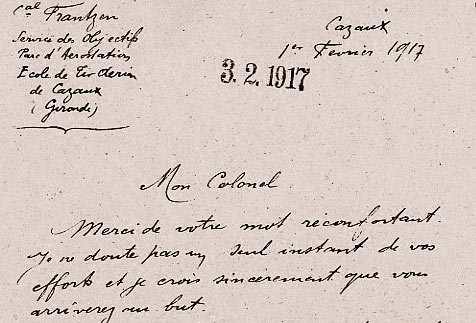 cal Frantzen
Service des Objectifs
Parc d'Aerostation
Ecole de Tir Aerien
de Cazaux
(Gironde)
Cazaux
1er Fevrier 1917
3.2.1917
Mon Colonel
Merci de votre mot reconfortant.
Je ne doute pas un seul instant de vos
efforts et je crois sincerement que vous
arriverez au but.